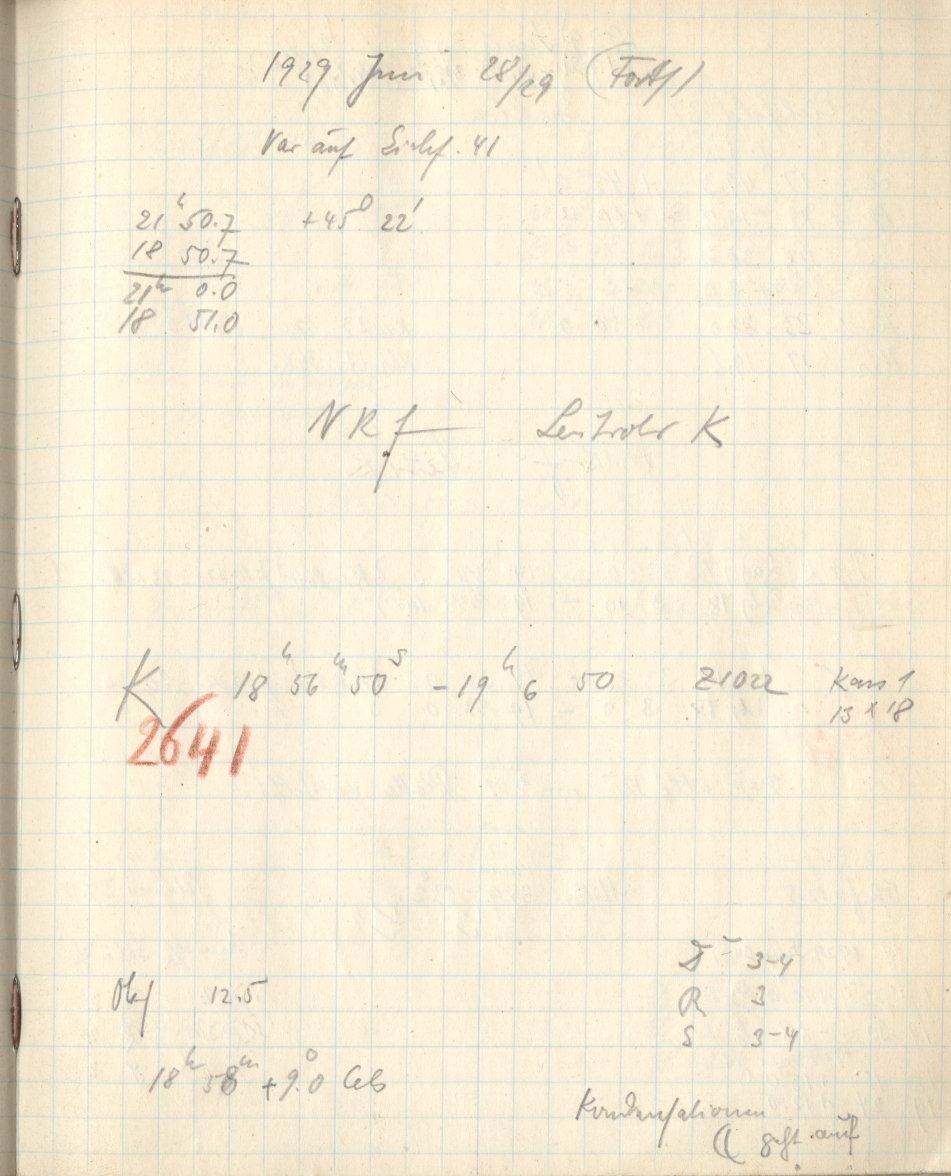 1929 Juni 28/29 (Forts)
Var auf Lichf. 41
21ʰ 50.7 +45° 22'
18 50.7
21ʰ 0.0
18 51.0
NRf Leitrohr K
K 18ʰ 56ᵐ 50ˢ -19ʰ 6 50 Z1022 Kass 1
13 x 18
2641
3-4
Obj 12.5 R 3
S 3-4
18ʰ 58ᵐ +9.°0
Kondensationen
geht auf